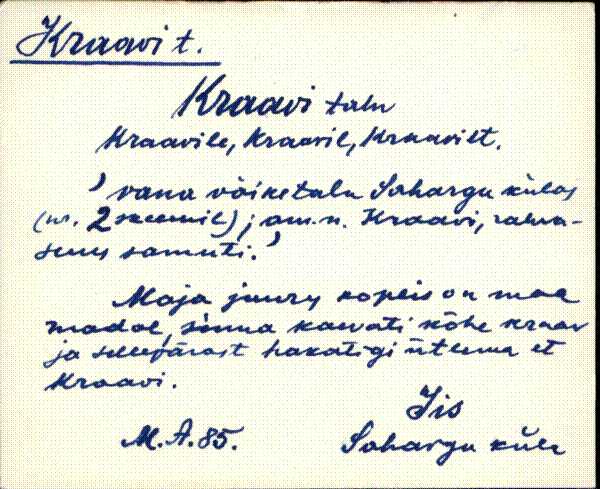 Kraavi t.
Kraavi talu
Kraavile, Kraavil, Kraavilt.
' vana väiketalu Sahargu külas
(nr. 2 skeemil); am. n. Kraavi, rahva-
suus samuti.'
Maja juures kopeis on maa
madal, sinna kaevati kohe kraav
ja sellepärast hakatigi ütlema et
Kraavi.
Iis
M.A.85. Sahargu küla